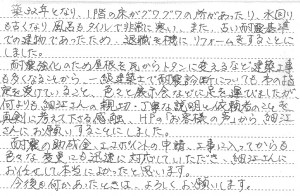 築32年となり、1階の床がブワブワの所があったり、水回り
も古くなり、風呂もタイルで非常に寒い、また、古い耐震基準
での建物であったため、退職を機にリフォームをすることに
しました。
耐震強化のため屋根を瓦からトタンに変えるなど建築工事
も多くなることから、一級建築士で耐震診断についても本の指
定を受けていること、色々と展示会などに足を運びましたが
何よりも細江さんの親切・丁寧な説明と依頼者のことを
真剣に考えて下さる感触、HPの「お客様の声」から細江さ
んにお願いすることにしました。
耐震の助成金、エコポイントの申請、工事に入ってからも
色々な変更にも迅速に対応していただき、細江さんに
お任せして本当によかったと思います。
今後も何かあったときは、よろしくお願いします。